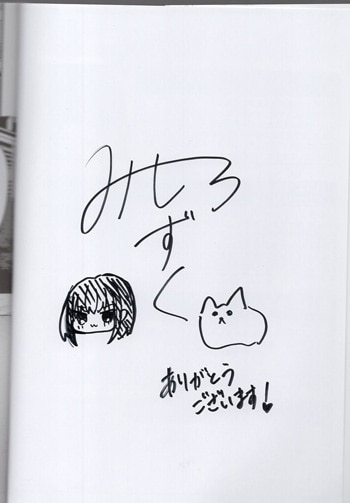 みしろ
ずく
ありがとう
ございます!